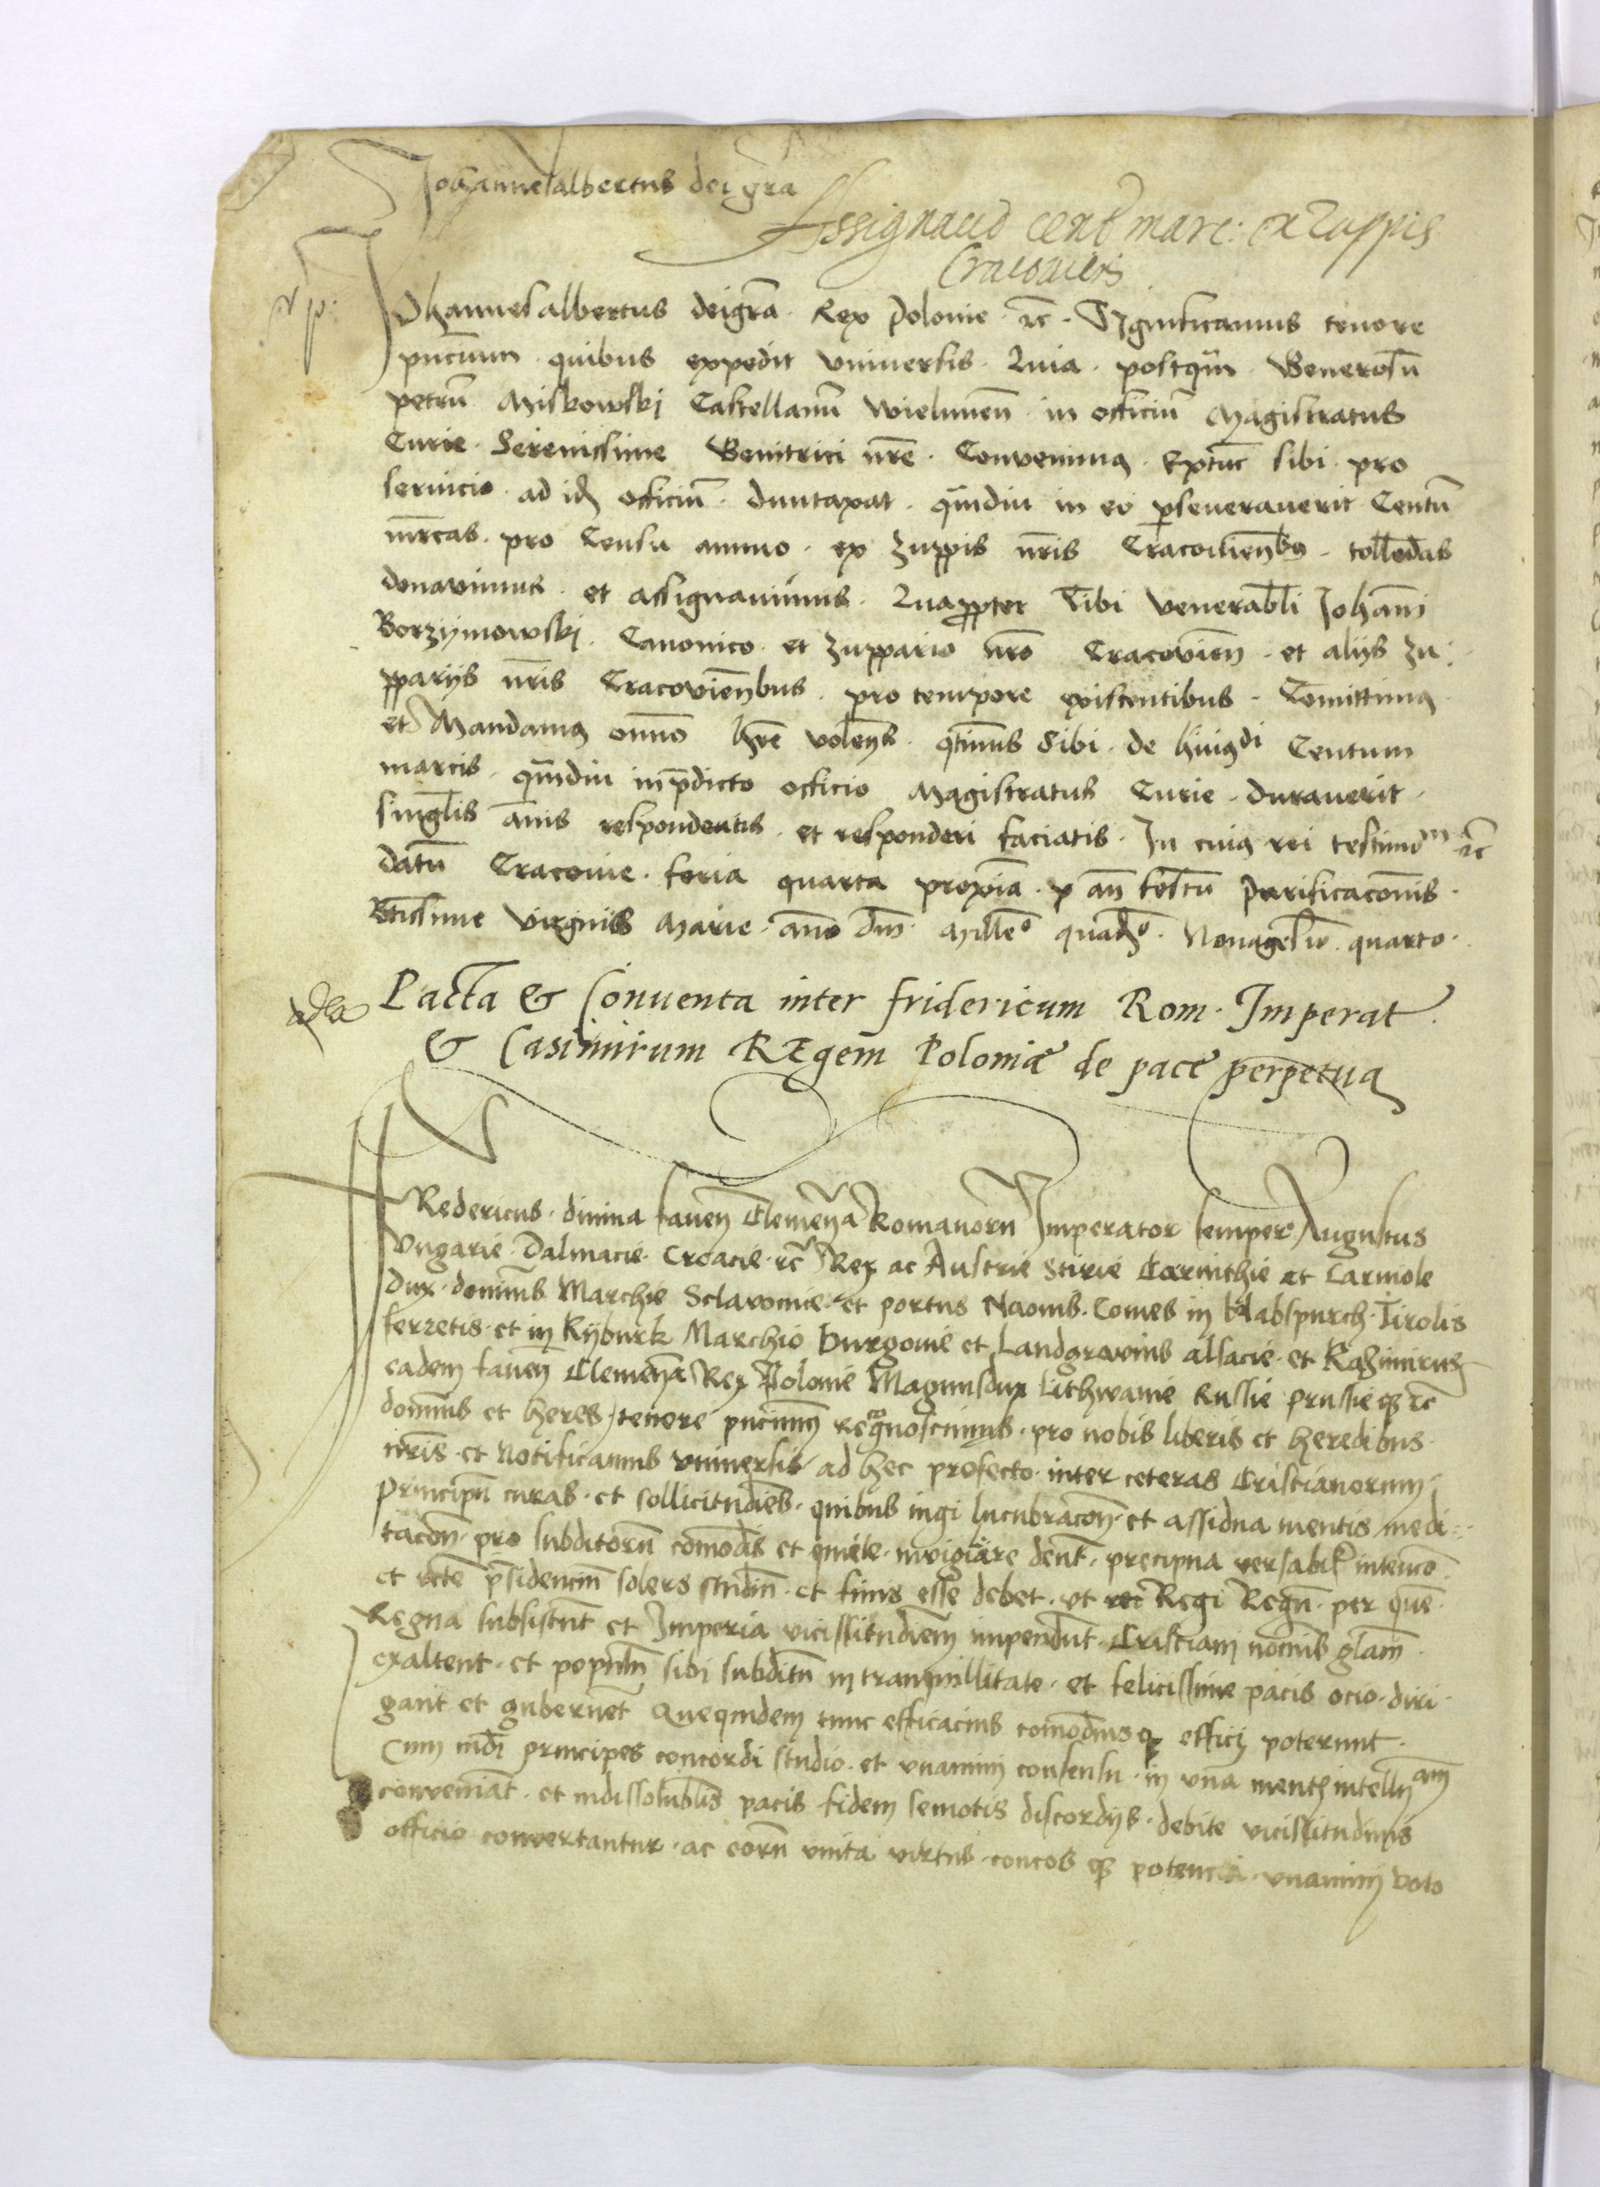 Johannes albertus dei gra
Assignacio cent marc: ex zuppis
Cracovien
Johannes albertus dei gra Rex Polonie rc. Significamus tenore
pncium quibus expedit universis. Quia postqm Generosu
petru Miskowski Castellanu Wielunen in officiu Magistratus
Curie Serenissime Genitrici nre Convenimus Extunc sibi pro
servicio ad id officiu duntaxat qmdiu in eo perseueraverit Centu
mrcas pro Censu annuo ex zuppis nris Cracovienbus tolledas
donavimus et assignavimus. Quapropter Tibi Venerabli Johanni
Borzijmowski Canonico et zuppario nro Cracovien et alijs zu:
pparijs nris Cracovienbus pro tempore existentibus Comittimus
et Mandamus omno hre volens qtinus Sibi de huiusdi Centum
marcis qmdiu in pdicto officio Magistratus Curie duraverit
singlis annis respondeatis et responderi faciatis. In cuius rei testim rc
datu Cracovie feria quarta proxia p an festu Purificaconis
Btissime Virginis Marie ano dni Milleo quadro Nonagesio quarto
Pacta & Conventa inter fridericum Rom. Imperat
& Casimirum REgem Poloniæ de pace perpetua
FRedericus divina faven Clemencia Romanoru Imperator semper Augustus
Vngarie Dalmacie Croacie rc Rex ac Austrie Stirie Carinthie et Carniole
dux dominus Marchie Sclavonice et portus Naonis Comes in Habspurch Tirolis
ferretis et in Kyburk Marchio Burgovie et Landgravius alsacie et Kazimirus
eadem faven Clemencia Rex Polonie Magnusdux Lithwanie Russie Prussieq rc
dominus et heres tenore pncium recognoscimus pro nobis liberis et heredibus
nris et Notificamus vniversis ad hec profecto inter ceteras Cristianorum
Principu curas et sollicitudies quibus ingi lucubracon et assidua mentis medi
tacon pro subditoru comodis et quiete invigilare dent precipua versabit intencio
et recte psidencium solers studiu et finis esse debet vt Regi Regu per que
Regna subsistunt et Imperia vicissitudiem impendunt Cristiani nominis glam
exaltent et populum sibi subditu in tranquillitate et felicissime pacis ocio diri
gant et gubernet Quequidem tunc efficacius comodiusq effici poterunt
Cum mdi principes concordi studio et vnanimi consensu in vna mentis intellg am
conveniat et indissolublis pacis fidem semotis discordijs debite vicissitudinis
officio convertantur ac eoru vnita virtus concos q potencia vnanimi voto